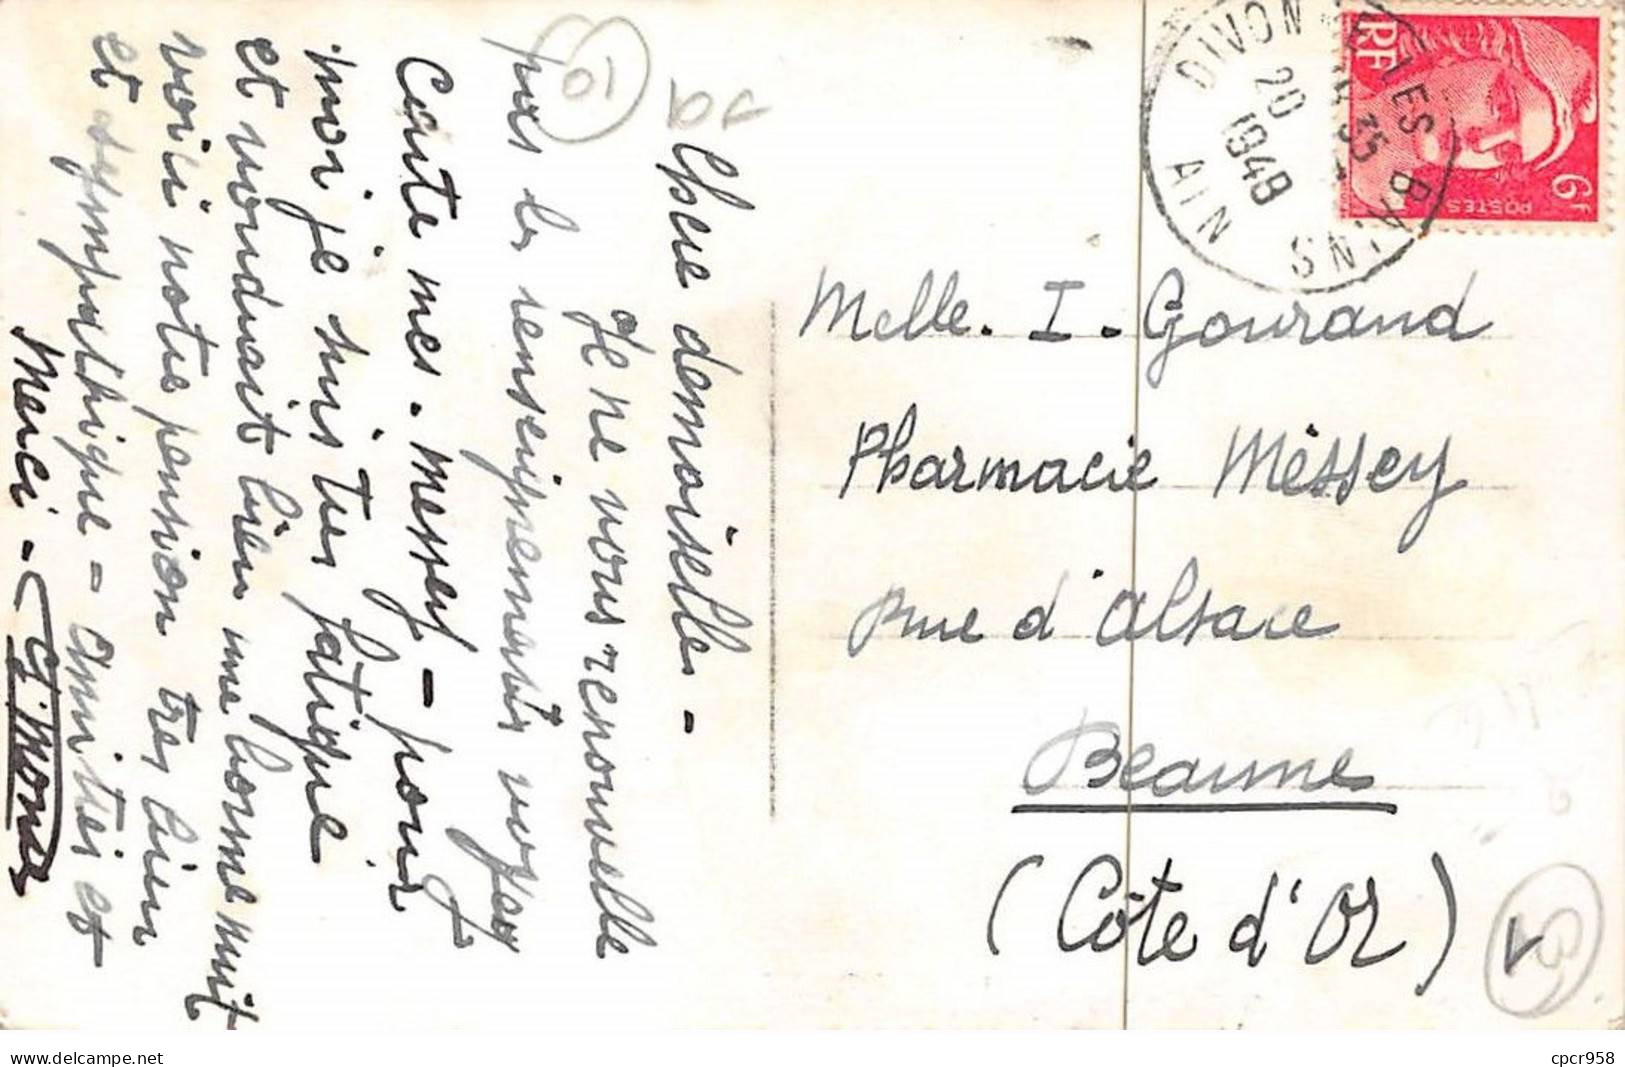 Chère demoiselle -
Je ne vous renouvelle
pas les renseignements voyez
Carte mes. Messey - pour
moi je suis très fatigue
et voudrait bien une bonne nuit
voici notre pension très bien
et sympathique = amities et
Merci -
DIVONNE LES BAINS
20
1948
AIN
RF
POSTES
6F
10
Melle. I. Gourand
Pharmacie Méssey
rue d'alsace
Beaune
(Côte d'Or)
cpc-pa-carte-postale.com
cpcr958